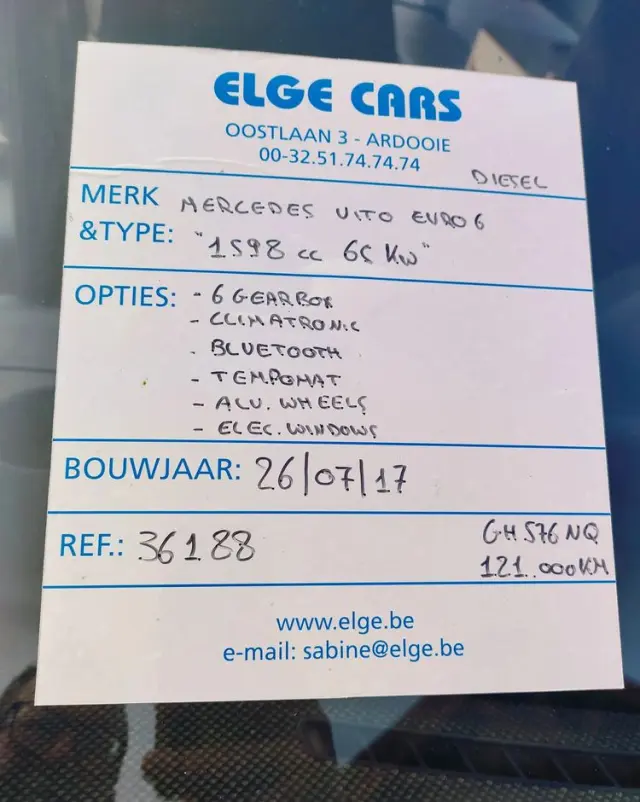 ELGE CARS
OOSTLAAN 3 - ARDOOIE
00-32.51.74.74.74
DIESEL
MERK MERCEDES VITO EURO6
&TYPE: "1598 cc 65 KW"
OPTIES: - 6 GEARBOX
- CLIMATRONIC
- BLUETOOTH
- TEMPOMAT
- ALU. WHEELS
- ELEC. WINDOWS
BOUWJAAR: 26/07/17
REF.: 36188
GH 576 NQ
121.000KM
www.elge.be
e-mail: sabine@elge.be